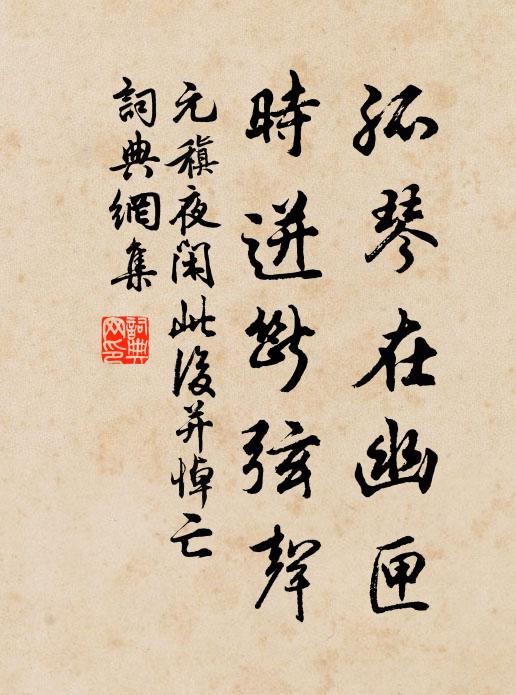 孤琴在幽匣
時迸斷弦聲
元稹夜閑此後并悼亡
詞典網集
詞典網印